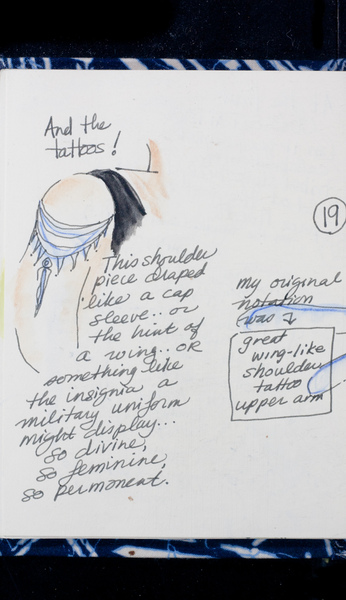 And the
tattoos!
19
This shoulder
piece draped
like a cap
sleeve.. or
the hint of
a wing.. OR
something like
the insignia a
military uniform
might display...
so divine,
so feminine,
so permanent.
my original
notation
was
great
wing-like
shoulder
tattoo
upper arm